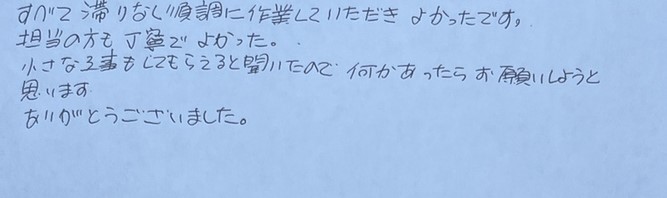 すべて滞りなく順調に作業していただきよかったです。
担当の方も丁寧でよかった。
小さな工事もしてもらえると聞いたので何かあったらお願いしようと
思います
ありがとうございました。